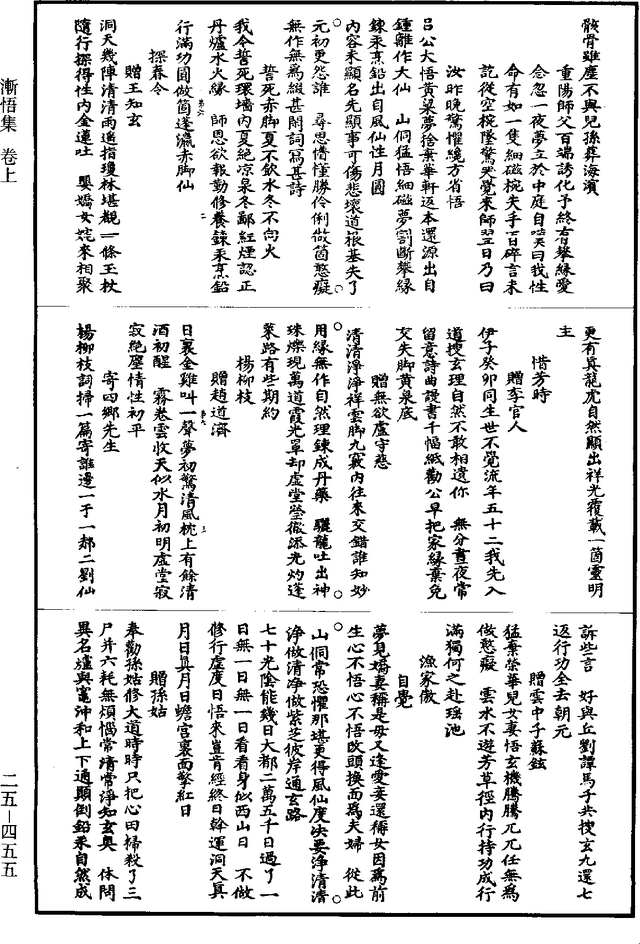 骸骨雖塵不與兒孫葬海濱
重陽師父百端誘化予終有攀緣愛
念忽一夜夢立於中庭自嘆曰我性
命有如一隻細磁椀失手百碎言未
訖從空椀墜驚哭覺來師翌日乃曰
汝昨晚驚懼纔方省悟
呂公大悟黃粱夢捨棄華軒返本還源出自
鍾離作大仙　山侗猛悟細磁夢割斷攀緣
鍊汞烹鉛出自風仙性月圓
內容未顯名先顯事可傷悲壞道根基失了
元初更怨誰　尋思懵懂勝伶俐做箇憨癡
無作無為綴甚閑詞寫甚詩
誓死赤腳夏不飲水冬不向火
我今誓死環墻內夏絕涼泉冬鄙紅煙認正
丹爐水火緣　師恩欲報勤修養鍊汞烹鉛
行滿功圓做箇蓬瀛赤腳仙
探春令
贈王知玄
洞天幾陣清清雨遙指瓊林堪觀一條玉杖
隨行探得性內金蓮吐　嬰嬌女姹來相聚
更有真龍虎自然顯出祥光覆載一箇靈明
主
惜芳時
贈李官人
伊予癸卯同生世不覺流年五十二我先入
道搜玄理自然不敢相遺你　無分晝夜常
留意詩曲謾書千幅紙勸公早把家緣棄免
交失腳黃泉底
贈無欲虛守慈
清清淨淨祥雲腳九竅內往來交錯誰知妙
用緣無作自然理鍊成丹藥　驪龍吐出神
珠燦現萬道霞光罩却虛堂瑩徹添光灼蓬
萊路有些期約
楊柳枝
贈趙道濟
日裏金雞叫一聲夢初驚清風枕上有餘清
酒初醒　霧卷雲收天似水月初明虛堂寂
寂絕塵情性初平
寄四鄉先生
楊柳枝詞掃一篇寄誰邊一于一郝二劉仙
訴些言　好與丘劉譚馬子共搜玄九還七
返行功全去朝元
贈雲中子蘇鉉
猛棄榮華兒女妻悟玄機騰騰兀兀任無為
做憨癡　雲水不遊芳草徑內行持功成行
滿獨何之赴瑤池
漁家傲
自覺
夢見嬌妻稱是母又逢愛妾還稱女因為前
生心不悟心不悟改頭換面為夫婦　從此
山侗常恐懼那堪更得風仙度決要淨清清
淨做清淨做紫芝彼岸通玄路
七十光陰能幾日大都二萬五千日過了一
日無一日無一日看看身似西山日　不做
修行虛度日悟來豈肯經終日斡運洞天真
月日真月日蟾宮裏面擎紅日
贈孫姑
奉勸孫姑修大道時時只把心田掃殺了三
尸并六耗無煩惱常清常淨知玄奧　休問
異名爐與竈沖和上下通顛倒鉛汞自然成
漸悟集　卷上
二五—四五五